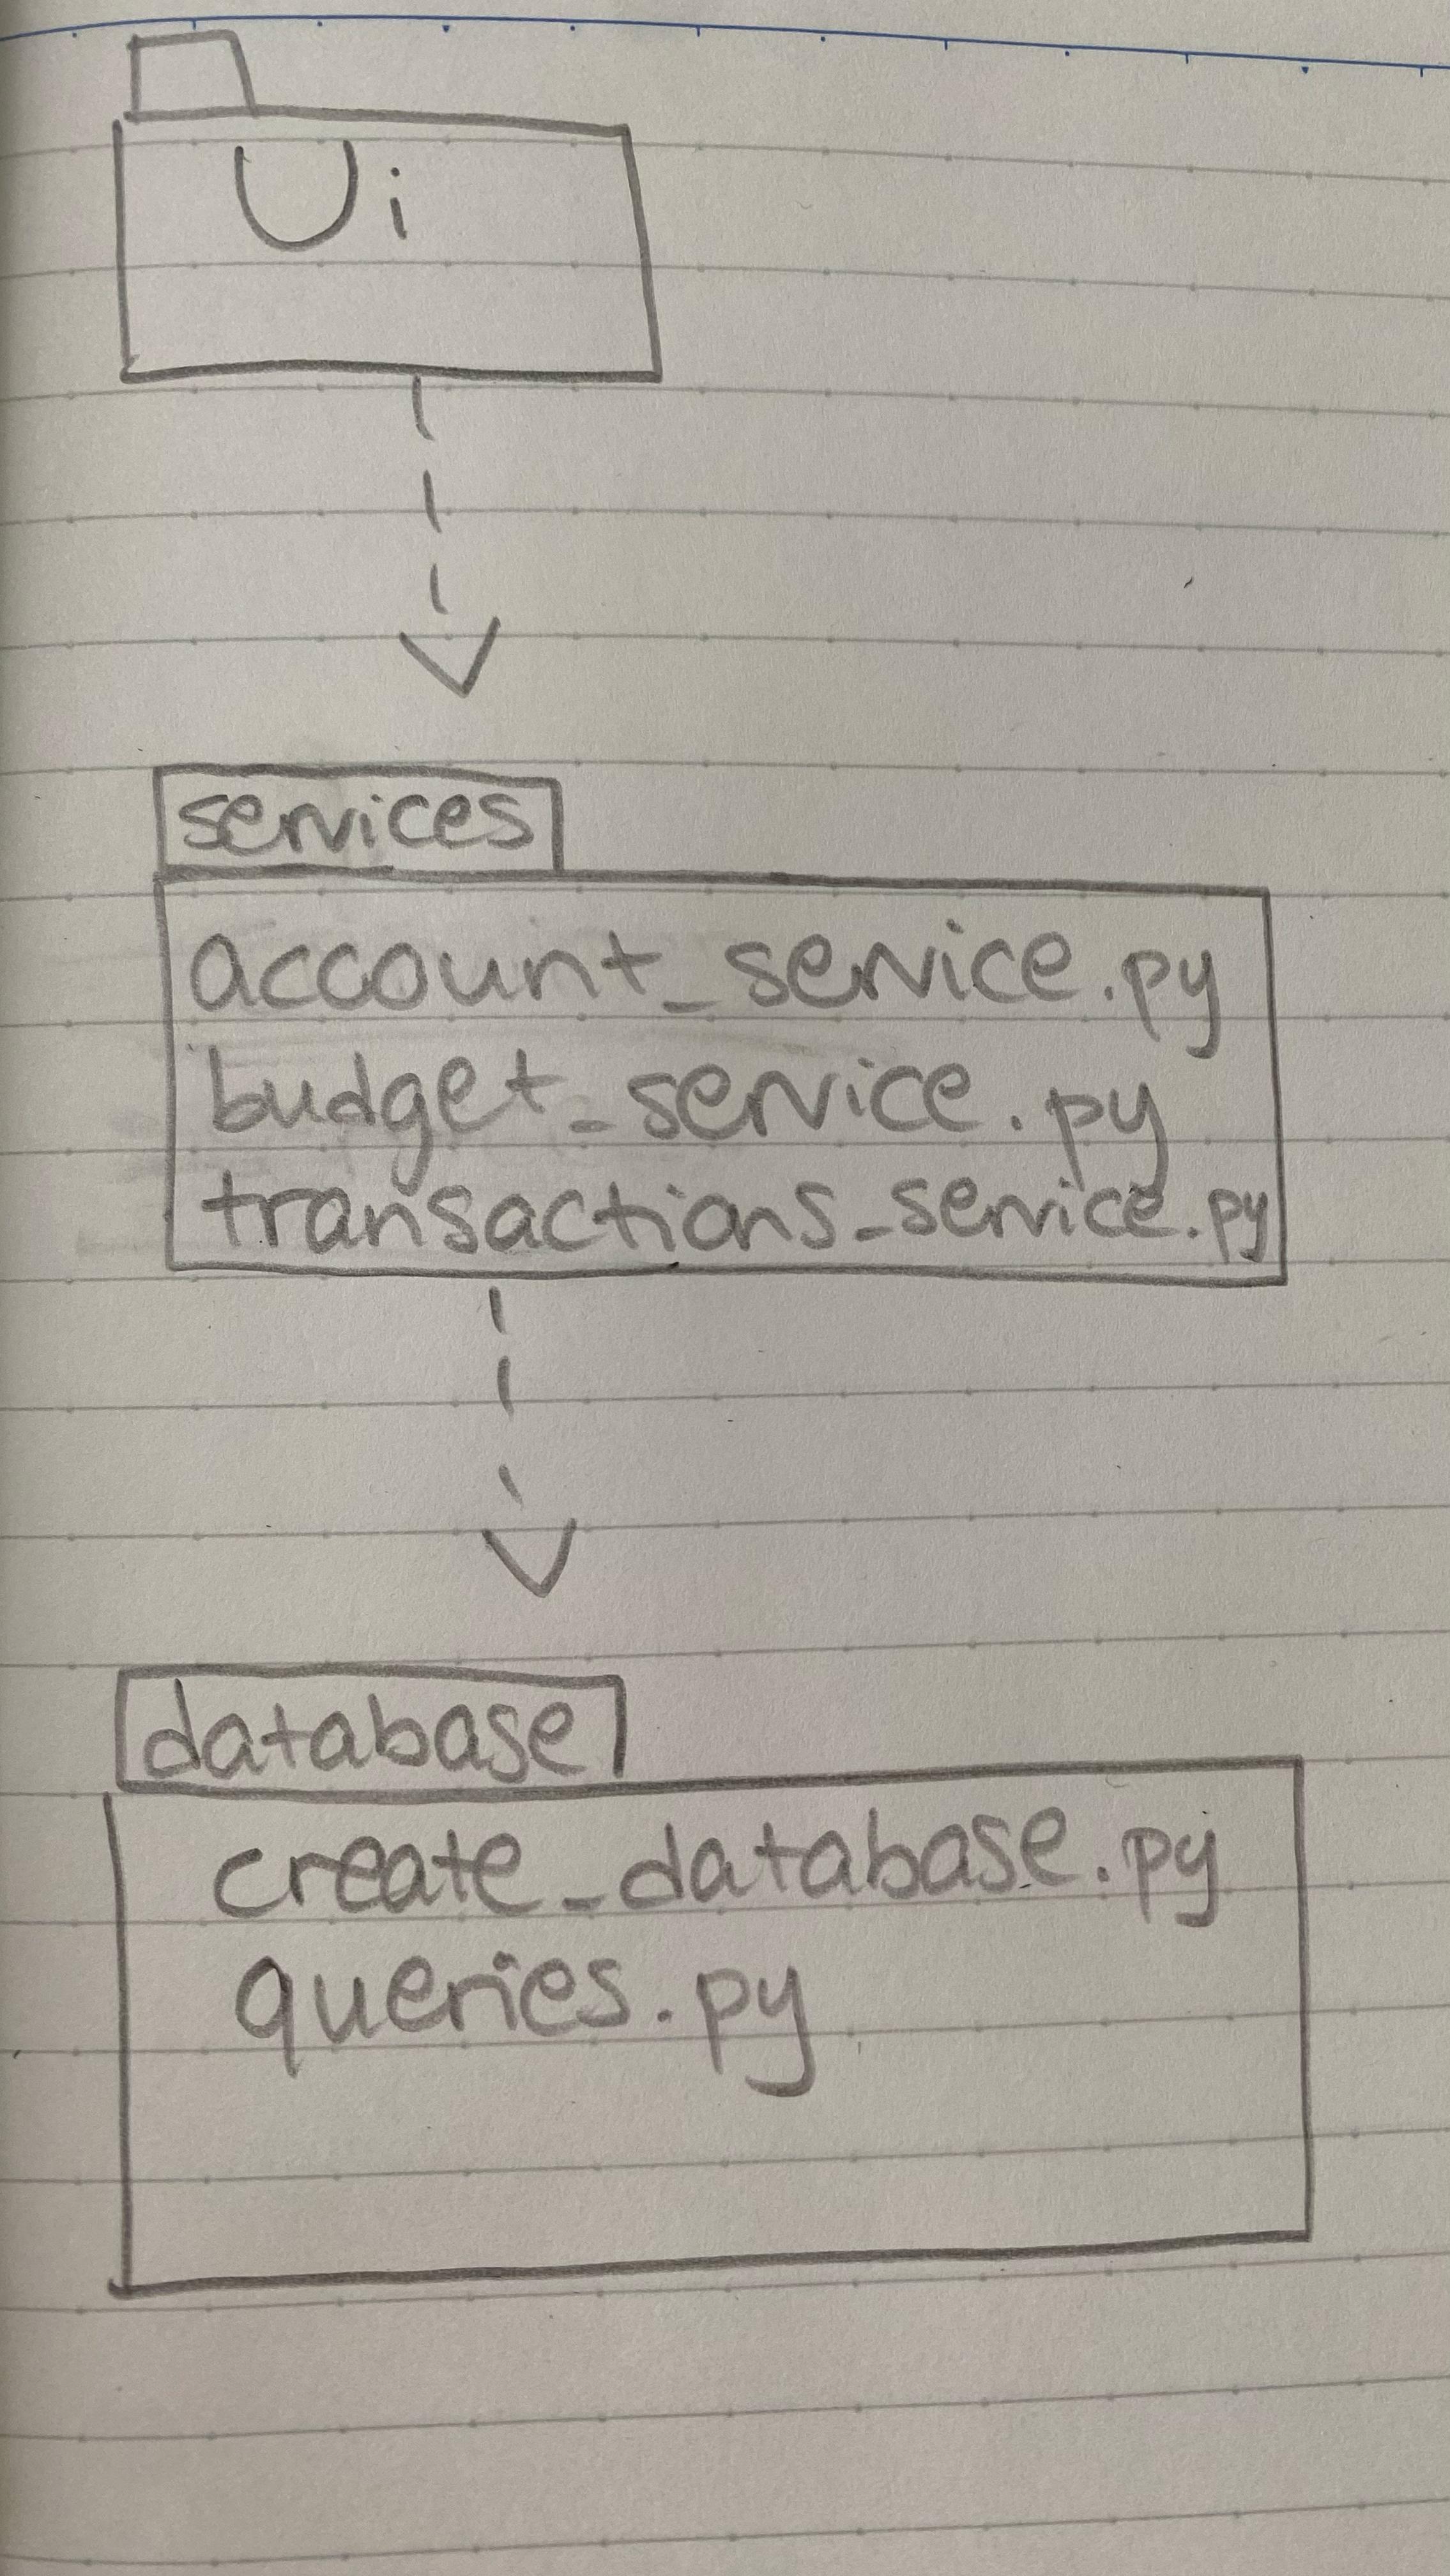 Ui
services
account_service.py
budget_service.py
transactions_service.py
database
create_database.py
queries.py